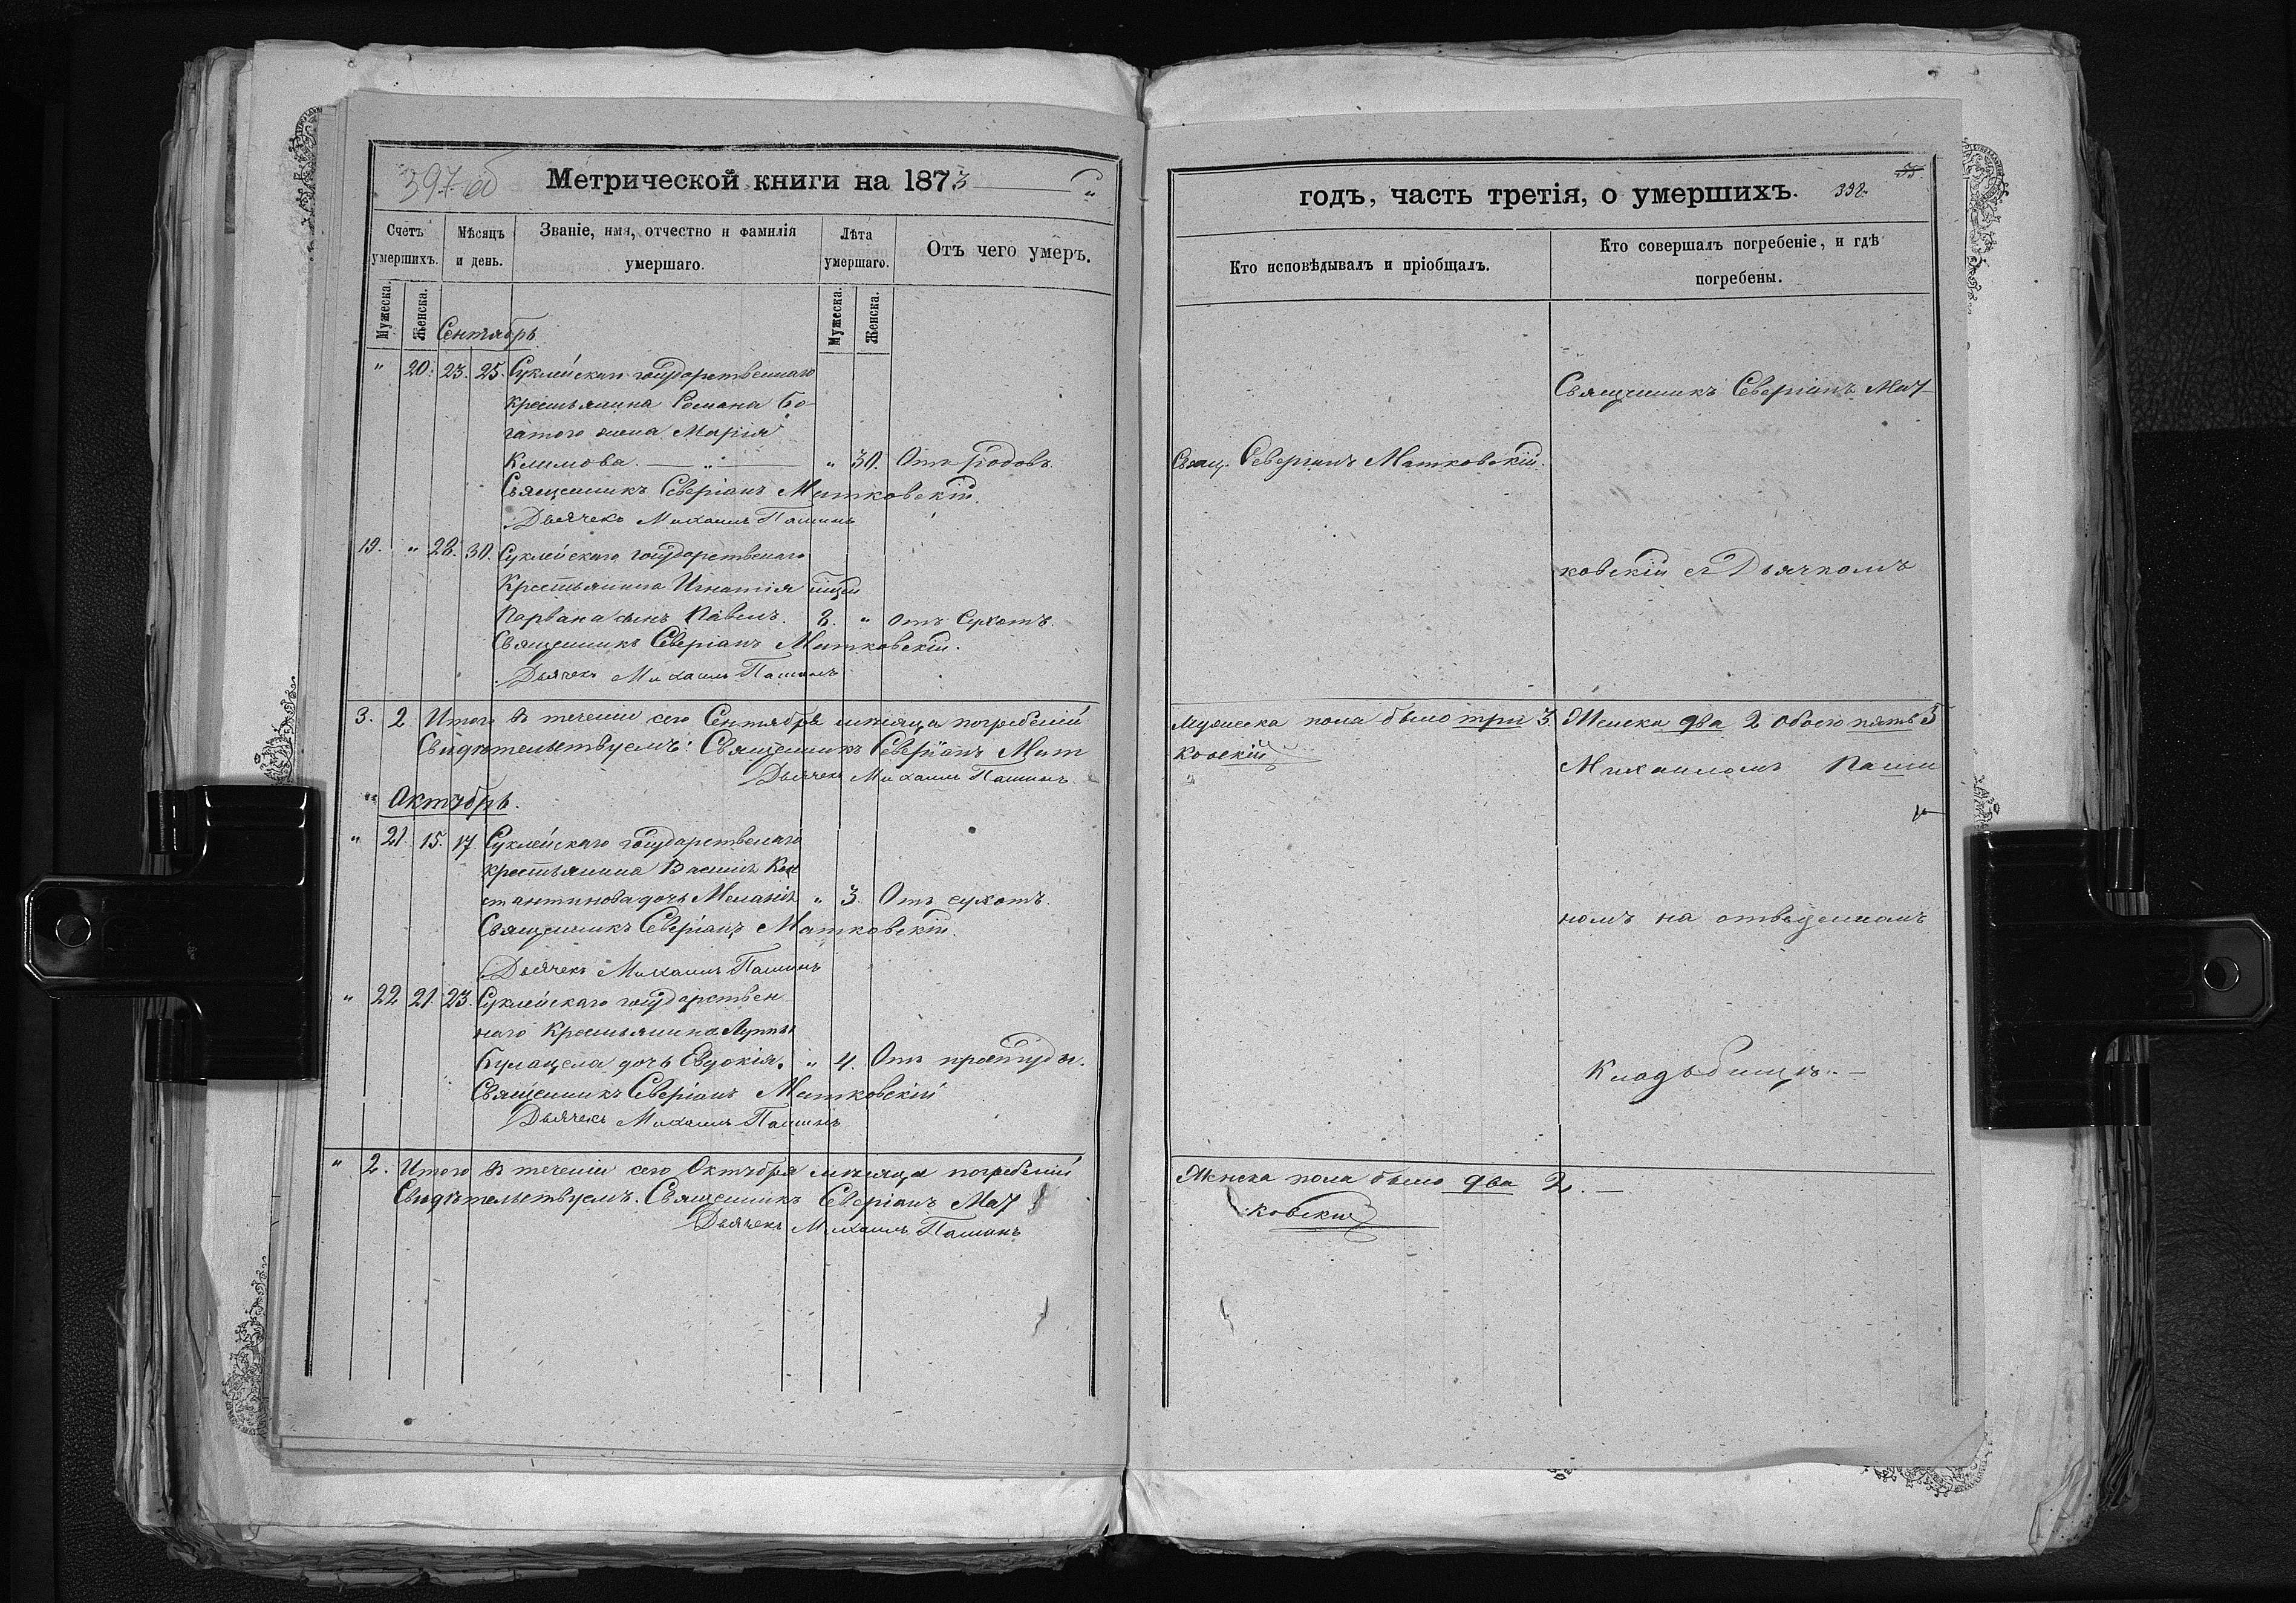 397 об
Метрической книги на 1873
Счетъ умершихъ.
Мѣсяцъ и день.
Званіе, имя, отчество и фамилія умершаго.
Лѣта умершаго.
Отъ чего умеръ.
Мужеска.
Женска.
Мужеска.
Женска.
Сентябрь
" 20. 23. 25. Суклейскаго государственнаго
крестьянина Романа Бо-
гатого жена Марія
Климова. — „ — " 30. Отъ родовъ.
Священникъ Северіанъ Матковскій.
Дьячекъ Михаилъ Пашинъ
19. " 28. 30. Суклейскаго государственаго
Крестьянина Игнатія
Порвана сынъ Павелъ. 8. " отъ Сухотъ.
Священникъ Северіанъ Матковскій.
Дьячекъ Михаилъ Пашинъ
3. 2. Итого въ теченіи сего Сентября мѣсяца погребеній
Свидѣтельствуемъ: Священникъ Северіанъ Мат
Дьячекъ Михаилъ Пашинъ
" Октябрь.
" 21. 15. 17. Суклейскаго государственаго
крестьянина Василія Кон
стантинова дочь Меланія " 3. Отъ сухотъ.
Священникъ Северіанъ Матковскій.
Дьячекъ Михаилъ Пашинъ
" 22 21. 23. Суклейскаго государствен
наго Крестьянина Луппы
Булацела дочь Евдокія. " 4. Отъ простуды.
Священникъ Северіанъ Матковскій
Дьячекъ Михаилъ Пашинъ
" 2. Итого въ теченіи сего Октября мѣсяца погребеній
Свидѣтельствуемъ. Священникъ Северіанъ Мат
Дьячекъ Михаилъ Пашинъ
годъ, часть третія, о умершихъ. 398.
55.
Кто исповѣдывалъ и пріобщалъ.
Кто совершалъ погребеніе, и гдѣ погребены.
Священникъ Северіанъ Мат-
Свящ. Северіанъ Матковскій.
ковскій съ Дьячкомъ
Мужеска пола было три 3. Женска два 2 обоего пять 5
ковскій
Михаиломъ Паши
номъ на отведенномъ
Кладбищѣ. —
Женска пола было два 2. —
ковскій